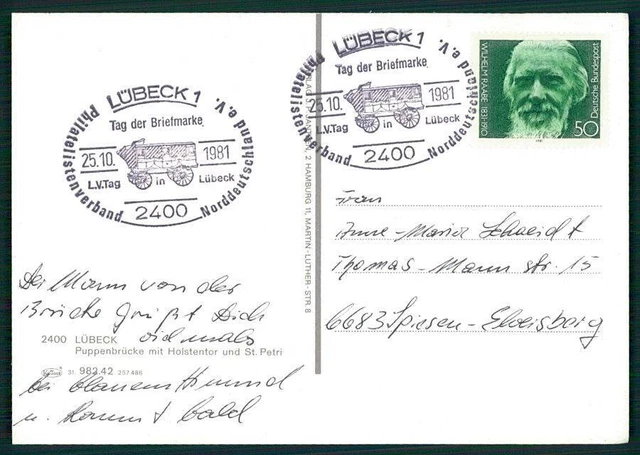 LÜBECK 1
Philatelistenverband Norddeutschland e.V.
Tag der Briefmarke
25.10. 1981
L.V.Tag in Lübeck
2400
LÜBECK 1
Philatelistenverband Norddeutschland e.V.
Tag der Briefmarke
25.10. 1981
L.V.Tag in Lübeck
2400
WILHELM RAABE 1831-1910
Deutsche Bundespost
50
2 HAMBURG 11, MARTIN-LUTHER-STR. 8
Frau
Anne-Maria Schmidt
Thomas-Mann str. 15
6683 Spiesen-Elversberg
Der Mann von der
Brücke grüßt Dich
2400 LÜBECK
Puppenbrücke mit Holstentor und St. Petri
31 982.42 257486
bei blauem Himmel
u. kommt bald